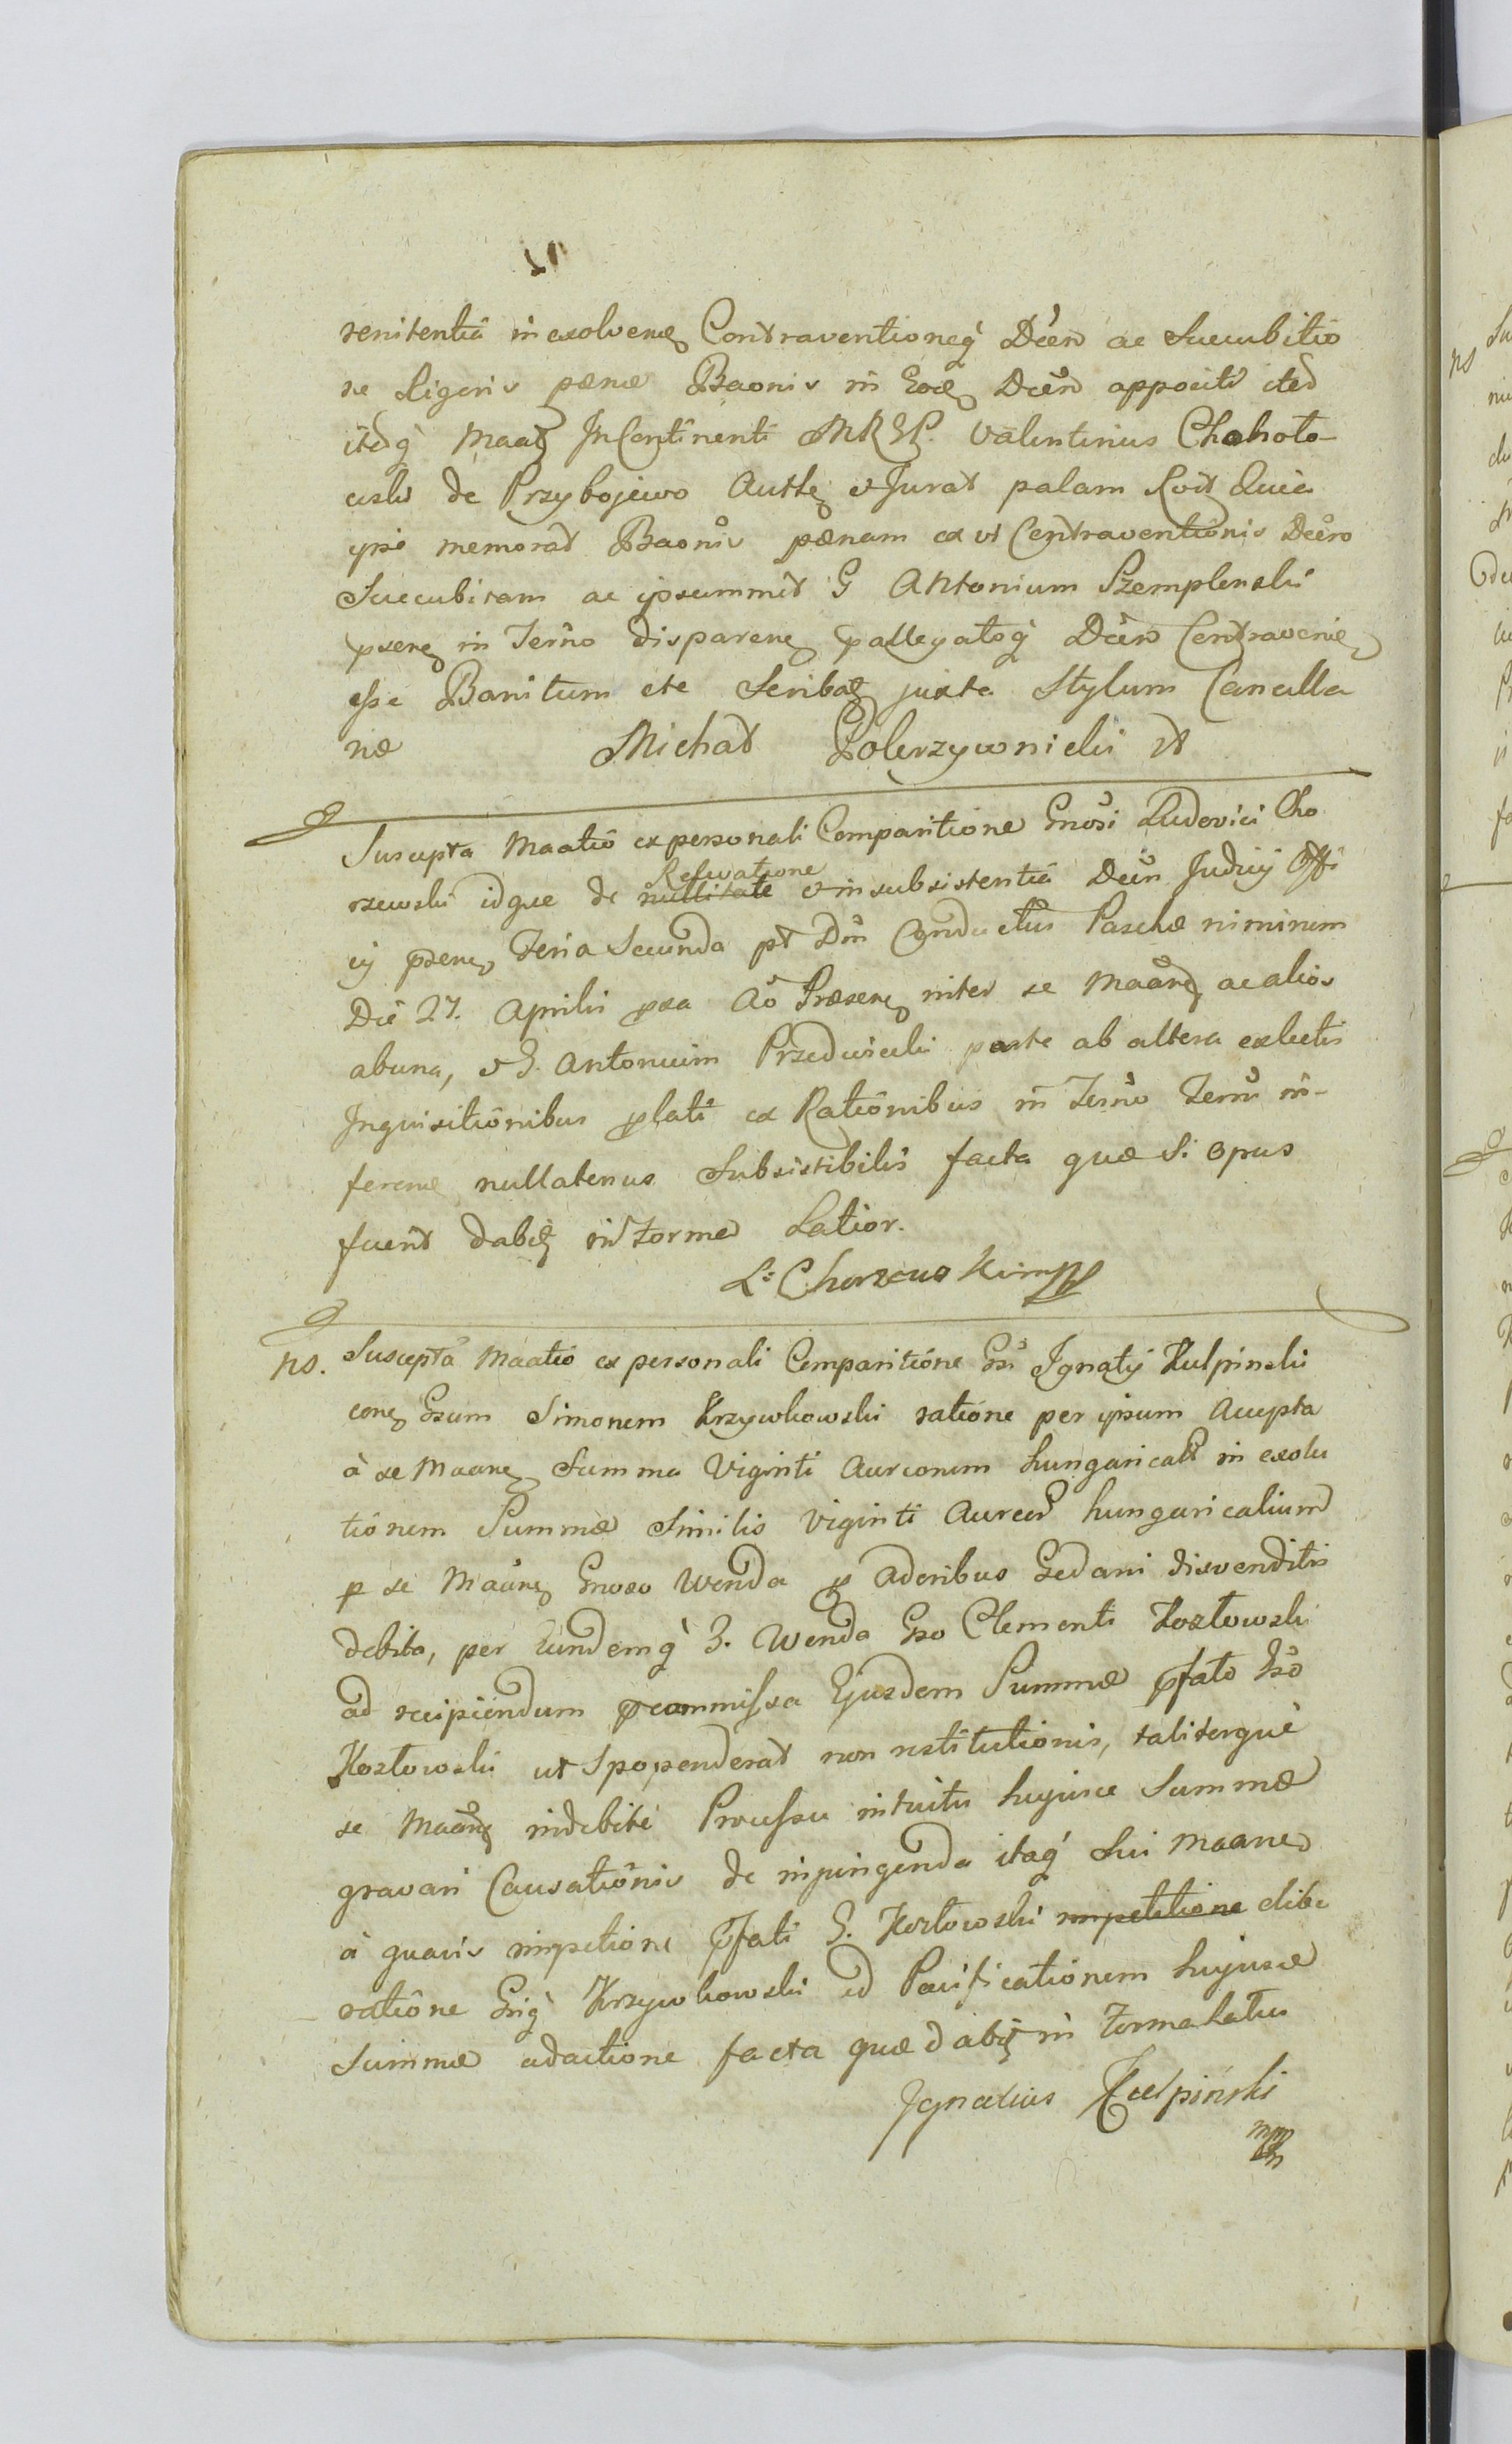 renitentia in exolvene Contraventioneq̀ Decro ac Succubitio
ne Rigoris pœnæ Baonis in Eode Decro appositi ited
itedq̀ Maatq InContinenti MRGP. Valentinus Chohoto-
cislu de Przybojewo Authe et Jurat palam Rod Quia
ipse memorat Baonis pœnam ex vt Contraventionis Decro
Succubitam ac ipsummet G Antonium Szemplenski
psene in Termo disparene pallegatoq̀ Decro Contravenie
esse Banitum ete Scribatq juxta Stylum Cancella
riæ Michał Dobrzywnicki
Suscepta Maatio ex personali Comparitione Gnosi Ludovici Cho
rzewski idque de nullitate Reservatione et insubsistentia Decri Judicij Offi
cij psene Feria Secunda pt Dm Conductus Paschæ nimirum
Die 27. Aprilis pxa Ao Præsene inter se Maane ac alios
ab una, et G. Antonium Przedwiecki parte ab altera exlectis
Inquisitionibus plati ex Rationibus in Termo Termi in-
ferene nullatenus Subsistibilis facta quæ si opus
fuerit dabitq in Forma Latior.
L: Chorzewski mpp
ns. Suscepta Maatio ex personali Comparitione Gsi Ignatij Kulpinski
cone Gsum Simonem Krzywkowski ratione per ipsum Accepta
à se Maane Summa Viginti Aureorum hungarical in exolu
tionem Summæ Similis Viginti Aureor hungaricalium
p se Maane Gnoso Wenda p Adoribus Gedani disvenditis
debita, per Eundemq̀ G. Wenda Gso Clementi Kozłowski
ad recipiendum pcommissa Ejusdem Summæ pfato Gso
Kozłowski ut Spoponderat non restitutionis, taliterque
se Maane indebite Processu intuitu hujusce Summæ
gravari Causationis de inpingenda itaq̀ Sui Maane
à quavis impetione pfati G. Kozłowski impetitione eliber
ratione Gsiq̀ Krzywkowski ad Pacificationem hujusce
Summæ adactione facta quæ dabitq in Forma Latius
Ignatius Kulpiński
mpp